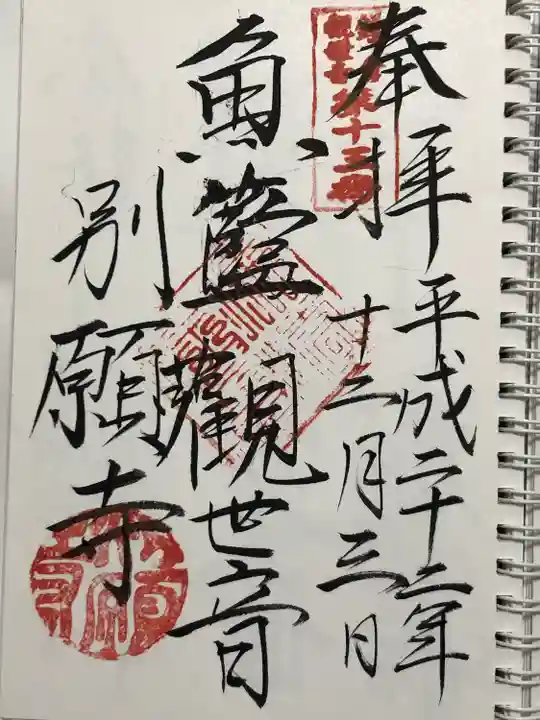 奉拝
平成二十二年
十二月三日
第十三番
魚籃觀世音
別願寺